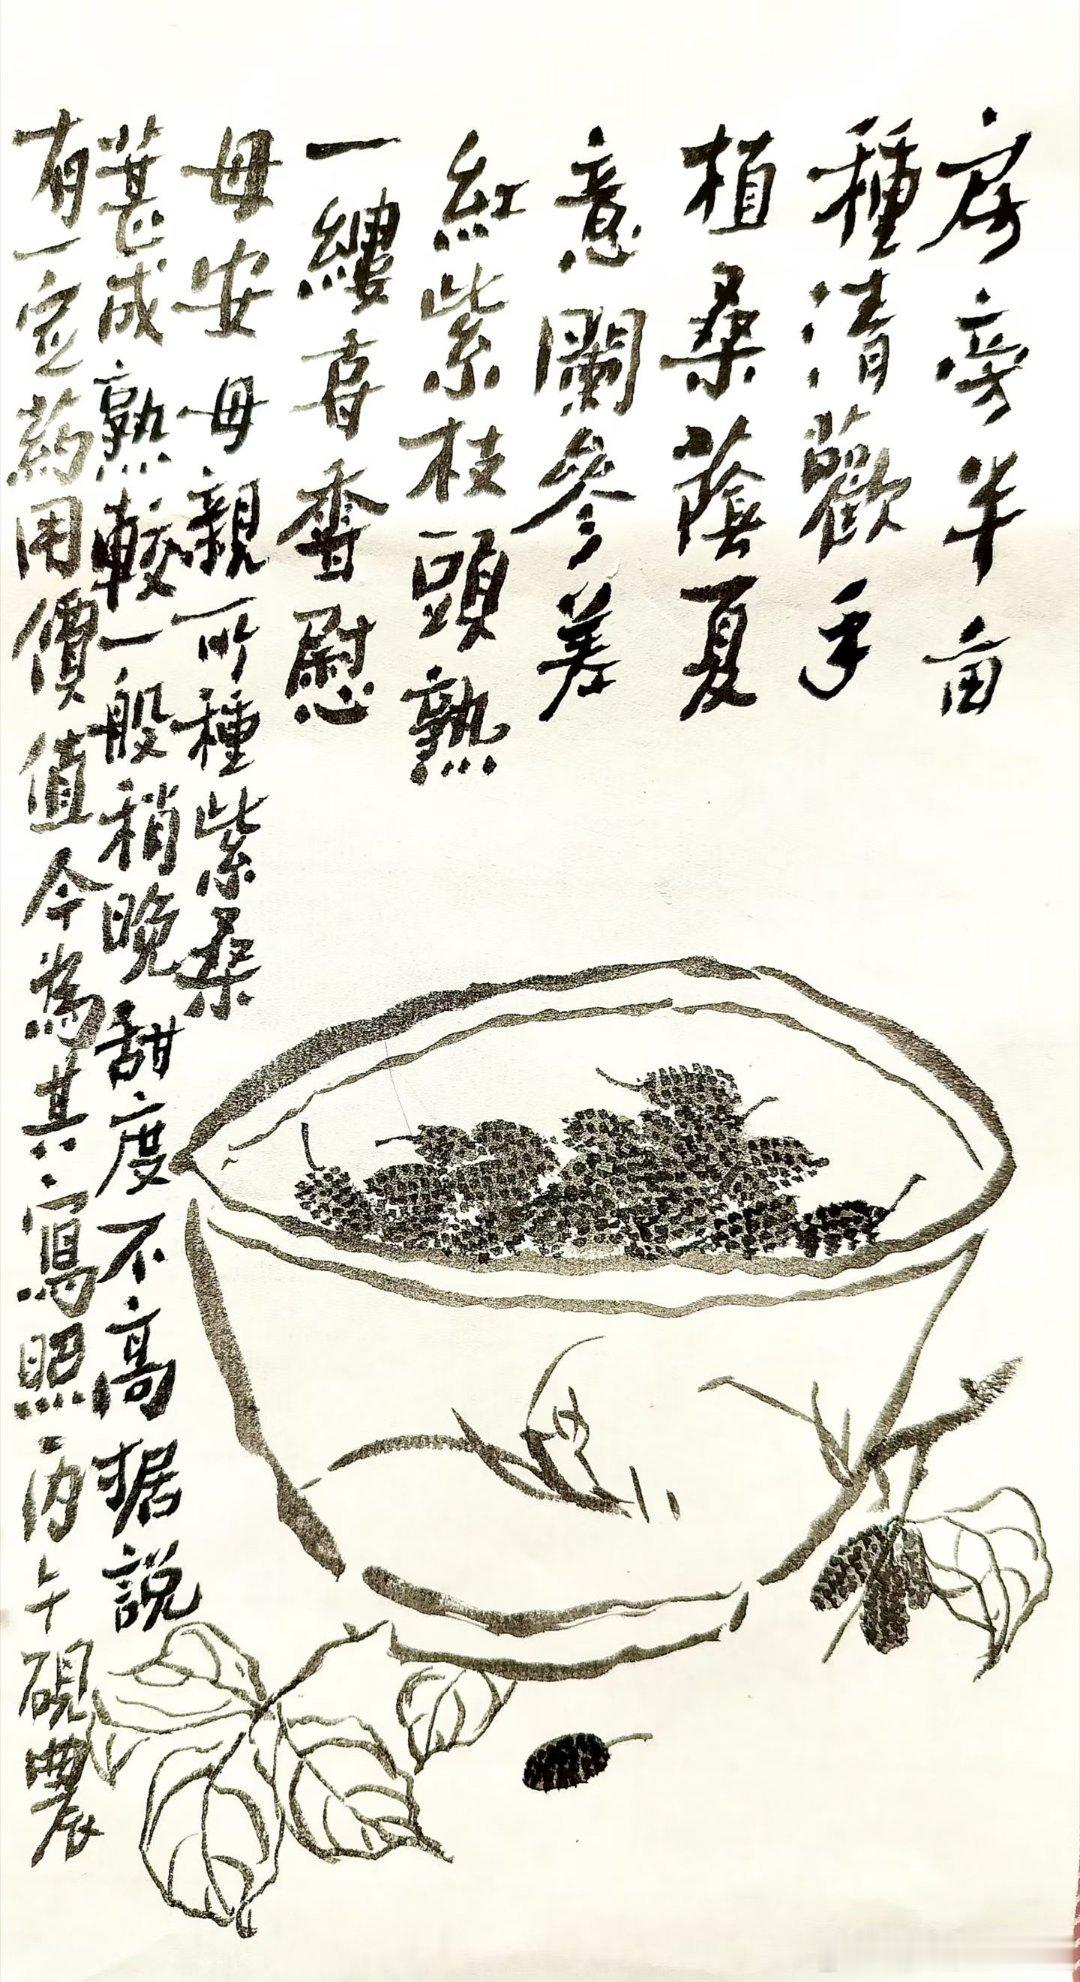 房旁半亩
種清歡手
植桑蔭夏
意闌參差
紅紫枝頭熟
一縷音香慰
母安母親所種紫桑
葚成熟較一般稍晚甜度不高据説
有一定葯用價值今為其寫照丙午硯農